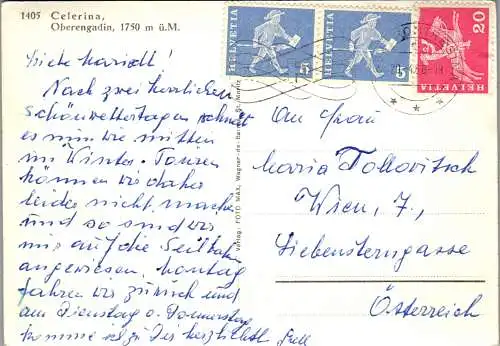 1405 Celerina,
Oberengadin, 1750 m ü.M.
HELVETIA 5
HELVETIA 5
HELVETIA 20
Liebe Mariedl!
Nach zwei herrlichen
Schönwettertagen schneit
es nun wie mitten
im Winter. Touren
können wir daher
leider nicht machen
und so sind wir
nur auf die Seilbahn
angewiesen. Montag
fahren wir zurück und
am Dienstag o. Donnerstag
komme ich zu Dir herzlichst
An Frau
Maria Tollovitsch
Wien, 7.,
Siebensterngasse
Österreich
Verlag: FOTO Max, Wagner